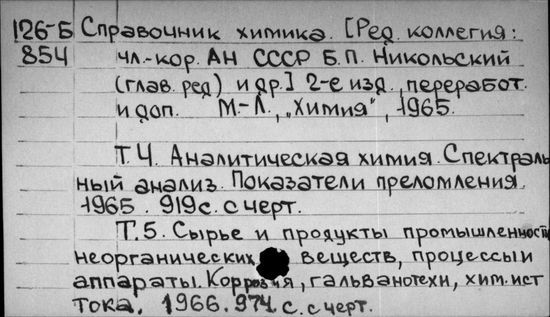 126-Б Справочник химика. [Ред. коллегия:
854 чл.-кор. АН СССР Б.П. Никольский
(глав. ред) и др.] 2-е изд., переработ.
и доп. М.-Л., „Химия", 1965.
Т.4. Аналитическая химия. Спектраль-
ный анализ. Показатели преломления.
1965. 919 с. с черт.
Т.5. Сырье и продукты промышленности
неорганических веществ, процессы и
аппараты. Коррозия, гальванотехн, хим. ист
тока. 1966. 974 с. с черт.